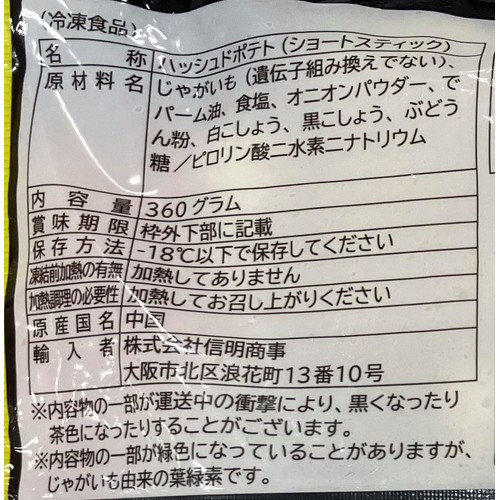 (冷凍食品)
名称 ハッシュドポテト(ショートスティック)
原材料名 じゃがいも(遺伝子組み換えでない)、
パーム油、食塩、オニオンパウダー、で
ん粉、白こしょう、黒こしょう、ぶどう
糖/ピロリン酸二水素二ナトリウム
内容量 360グラム
賞味期限 枠外下部に記載
保存方法 -18℃以下で保存してください
凍結前加熱の有無 加熱してありません
加熱調理の必要性 加熱してお召し上がりください
原産国名 中国
輸入者 株式会社信明商事
大阪市北区浪花町13番10号
※内容物の一部が運送中の衝撃により、黒くなったり
茶色になったりすることがございます。
※内容物の一部が緑色になっていることがありますが、
じゃがいも由来の葉緑素です。